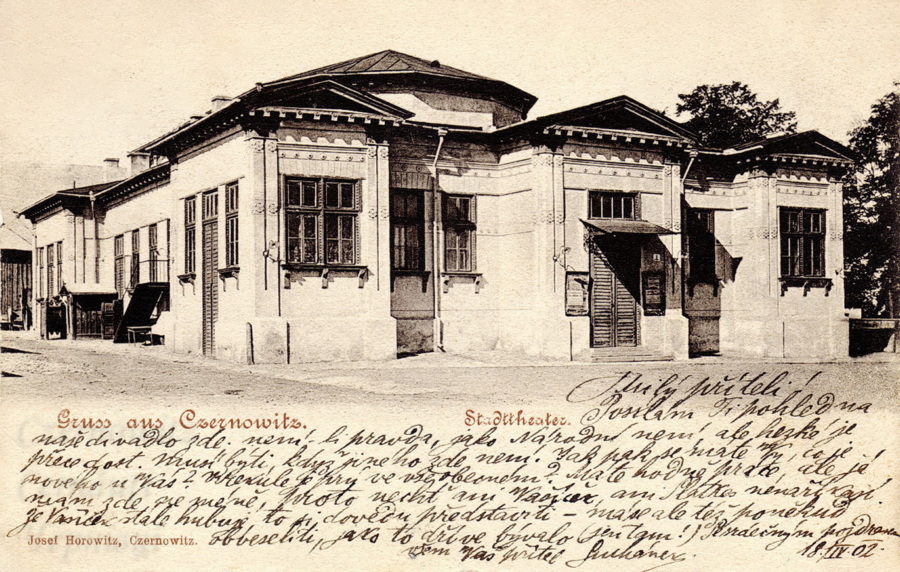 Gruss aus Czernowitz.
Stadttheater.
Milý příteli!
Posílám Ti pohled na
naše divadlo zde. není-li pravda, jako Národní není, ale hezké je
přece dost. Musí býti, když jiného zde není. Jak pak se máte Vy, co je
nového u Vás? ve všeobecném? Máte hodně práce, ale já
zde ne méně, proto nechť ani Vašíček, ani nenaříkají
je Vašíček stále hubuje, to si dovedu představiti - máse ale též poněkud
obveseliti, jako to dříve bývalo (jen tam!) Srdečným pozdravem
Váš přítel
18./IV. 02.
Josef Horowitz, Czernowitz.